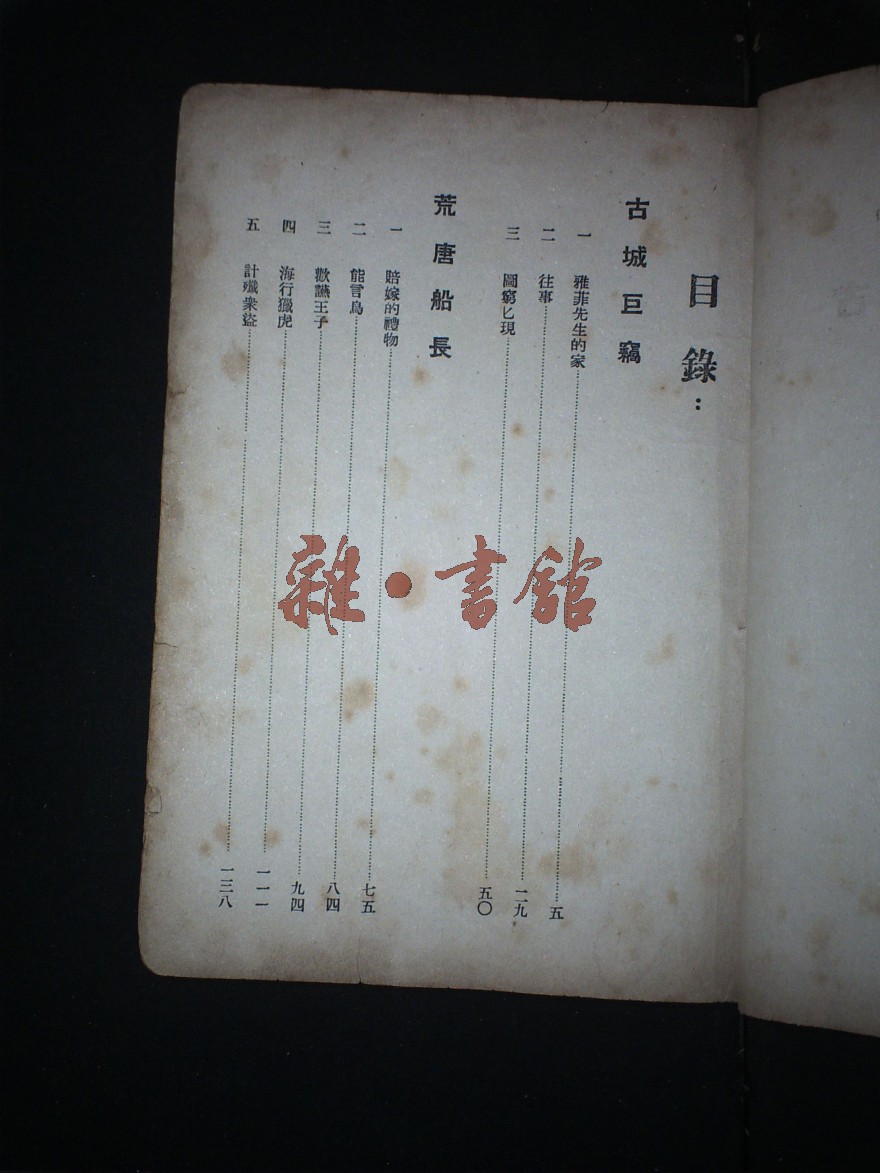 目錄:
古城巨竊
一 雅菲先生的家……五
二 往事……二九
三 圖窮匕現……五〇
荒唐船長
一 賠嫁的禮物……七五
二 能言鳥……八四
三 歡讌王子……九四
四 海行獵虎……一一一
五 計殲衆盜……一三八
雜·書館